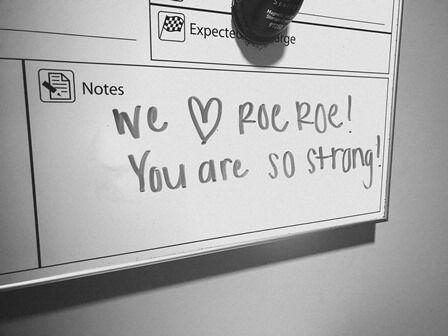 Expected
Notes
We ♡ ROE ROE!
You are so strong!